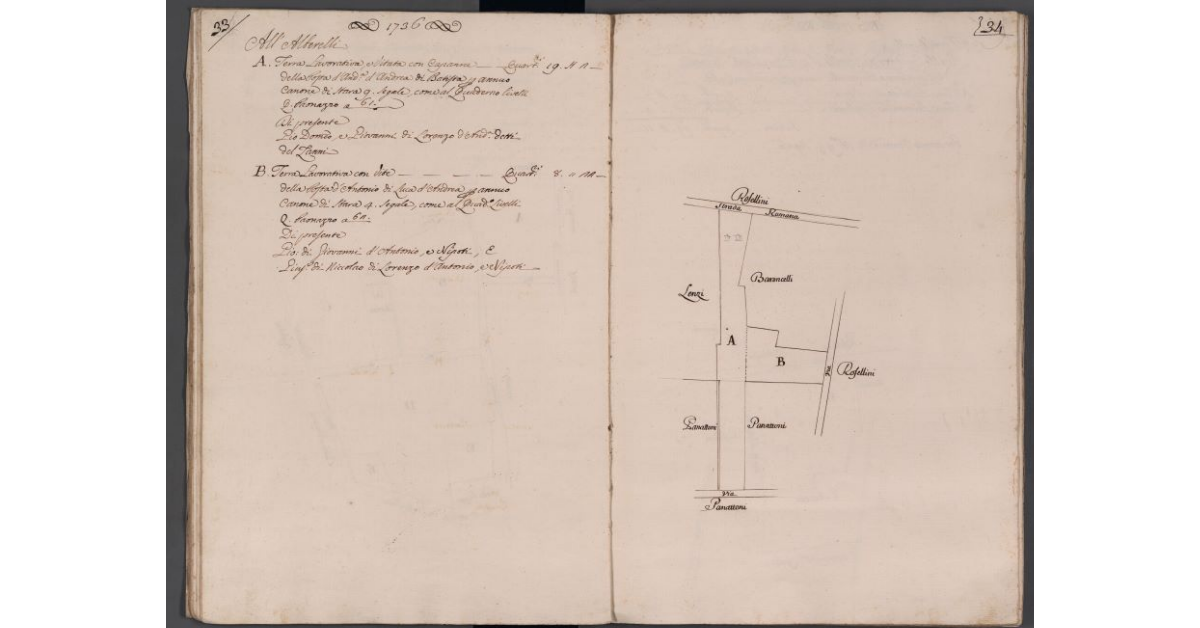 33
1736
All' Alberelli
A. Terra Lavorativa, e Vitata con Capanna — Quard.i 19. N
della Posta d'And.a d'Andrea di Batista p annuo
Canone di Stara 9. Segale, come al Quaderno livelli
Q. Paonazzo a 61.
Di presente
Pio Dom.co, e Giovanni di Lorenzo d'And.a detti
del Zanni
B. Terra Lavorativa con Vite — Quard.i 8.
della Posta d'Antonio di Luca d'Andrea p annuo
Canone di Stara 4. Segale, come al Quad.o Livelli
Q. Paonazzo a
Di presente
Pio. di Giovanni d'Antonio, e Nipoti, E
di Niccolao di Lorenzo d'Antonio, e Nipoti
34
Rosellini
Strada Romana
Lenzi
A
B
Via
Rosellini
Panattoni
Panattoni
Via
Panattoni